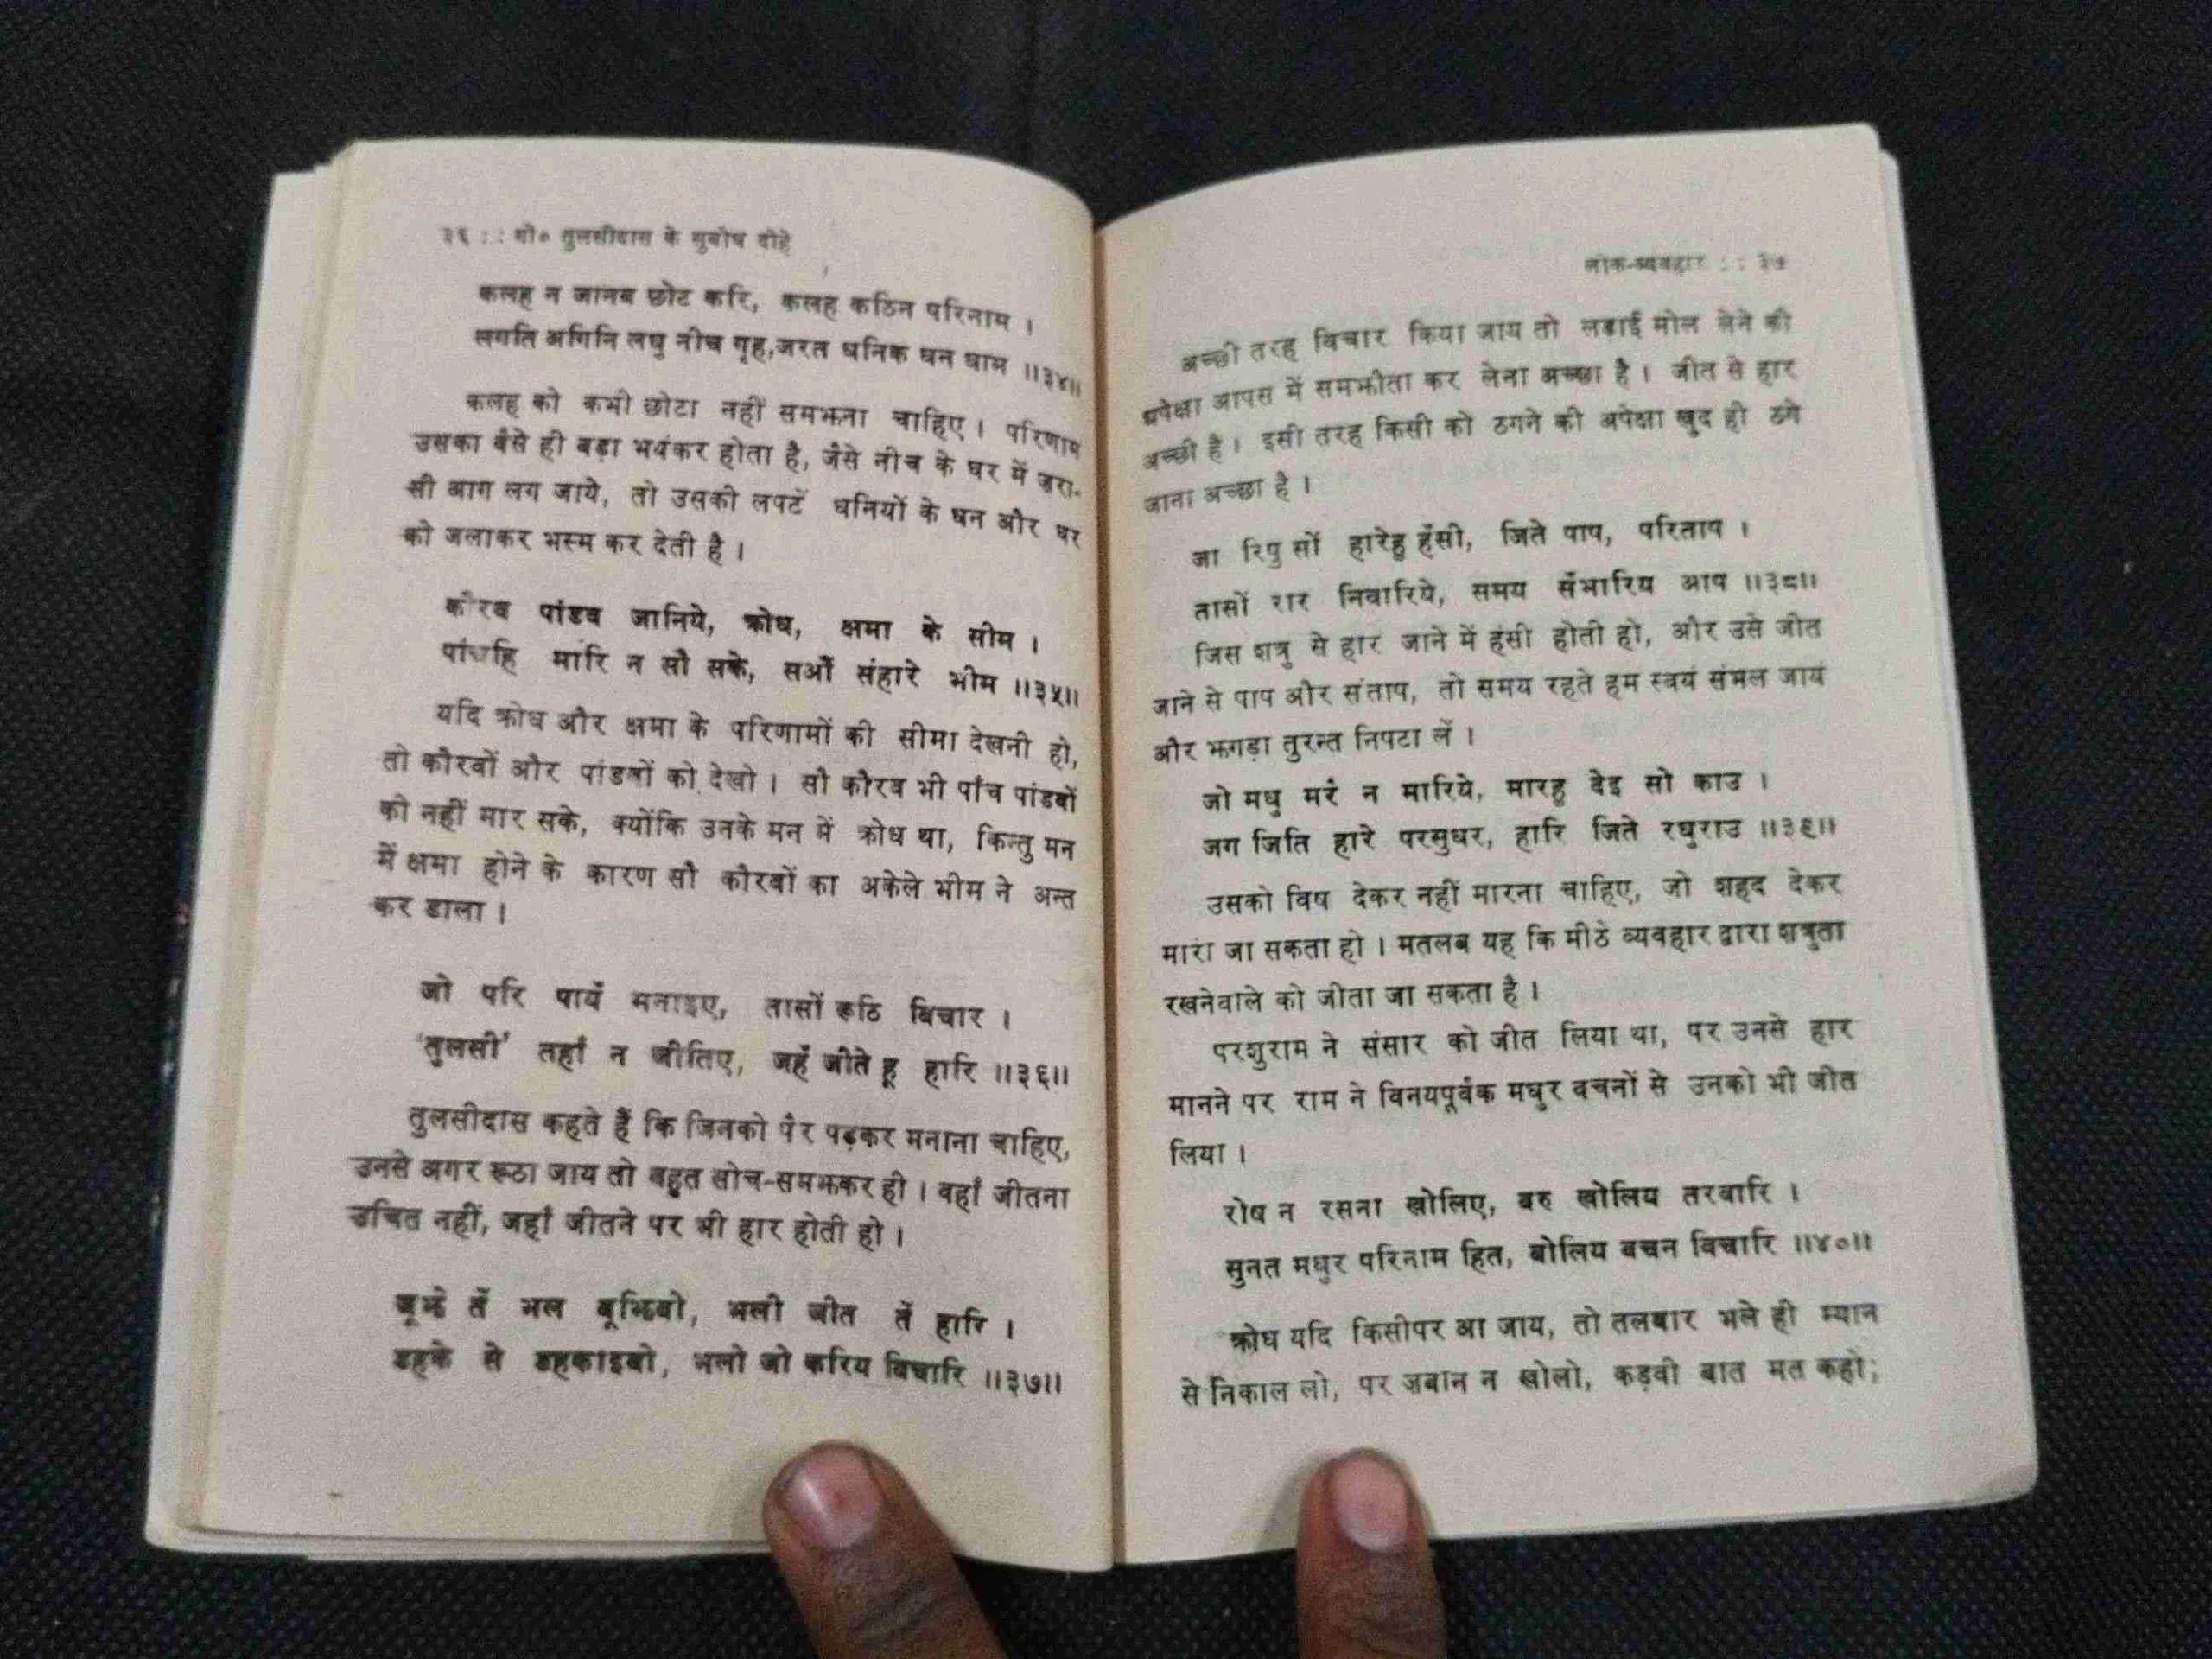 ३६ :: गो० तुलसीदास के सुबोध दोहे
कलह न जानब छोट करि, कलह कठिन परिनाम ।
लगति अगिनि लघु नीच गृह,जरत धनिक धन धाम ॥३४॥
कलह को कभी छोटा नहीं समझना चाहिए । परिणाम
उसका वैसे ही बड़ा भयंकर होता है, जैसे नीच के घर में ज़रा-
सी आग लग जाये, तो उसकी लपटें धनियों के धन और घर
को जलाकर भस्म कर देती है ।
कौरव पांडव जानिये, क्रोध, क्षमा के सीम ।
पांचहि मारि न सौ सके, सऔं संहारे भीम ॥३५॥
यदि क्रोध और क्षमा के परिणामों की सीमा देखनी हो,
तो कौरवों और पांडवों को देखो । सौ कौरव भी पाँच पांडवों
को नहीं मार सके, क्योंकि उनके मन में क्रोध था, किन्तु मन
में क्षमा होने के कारण सौ कौरवों का अकेले भीम ने अन्त
कर डाला ।
जो परि पायँ मनाइए, तासों रूठि बिचार ।
'तुलसी' तहाँ न जीतिए, जहँ जीते हू हारि ॥३६॥
तुलसीदास कहते हैं कि जिनको पैर पड़कर मनाना चाहिए,
उनसे अगर रूठा जाय तो बहुत सोच-समझकर ही । वहाँ जीतना
उचित नहीं, जहाँ जीतने पर भी हार होती हो ।
जूझे तें भल बूझिबो, भली जीत तें हारि ।
डहके से डहकाइबो, भलो जो करिय बिचारि ॥३७॥
लोक-व्यवहार :: ३७
अच्छी तरह विचार किया जाय तो लड़ाई मोल लेने की
अपेक्षा आपस में समझौता कर लेना अच्छा है । जीत से हार
अच्छी है । इसी तरह किसी को ठगने की अपेक्षा खुद ही ठगे
जाना अच्छा है ।
जा रिपु सों हारेहु हँसी, जिते पाप, परिताप ।
तासों रार निवारिये, समय सँभारिय आप ॥३८॥
जिस शत्रु से हार जाने में हंसी होती हो, और उसे जीत
जाने से पाप और संताप, तो समय रहते हम स्वयं संभल जायं
और झगड़ा तुरन्त निपटा लें ।
जो मधु मरै न मारिये, मारहु देइ सो काउ ।
जग जिति हारे परसुधर, हारि जिते रघुराउ ॥३९॥
उसको विष देकर नहीं मारना चाहिए, जो शहद देकर
मारा जा सकता हो । मतलब यह कि मीठे व्यवहार द्वारा शत्रुता
रखनेवाले को जीता जा सकता है ।
परशुराम ने संसार को जीत लिया था, पर उनसे हार
मानने पर राम ने विनयपूर्वक मधुर वचनों से उनको भी जीत
लिया ।
रोष न रसना खोलिए, बरु खोलिय तरवारि ।
सुनत मधुर परिनाम हित, बोलिय बचन विचारि ॥४०॥
क्रोध यदि किसीपर आ जाय, तो तलवार भले ही म्यान
से निकाल लो, पर ज़बान न खोलो, कड़वी बात मत कहो;